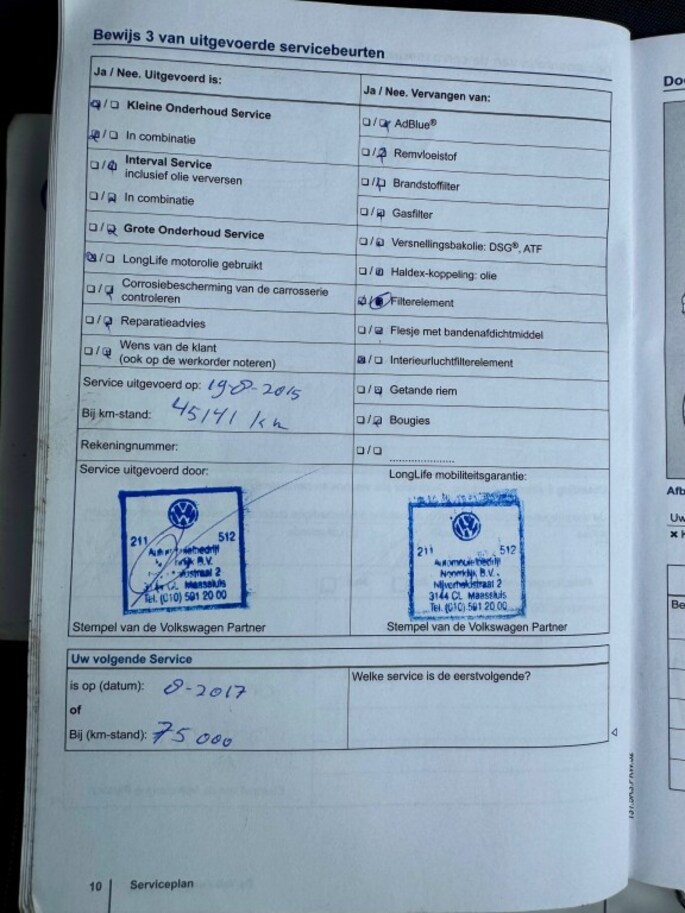 Bewijs 3 van uitgevoerde servicebeurten
Ja / Nee. Uitgevoerd is:
Kleine Onderhoud Service
In combinatie
Interval Service
inclusief olie verversen
In combinatie
Grote Onderhoud Service
LongLife motorolie gebruikt
Corrosiebescherming van de carrosserie
controleren
Reparatieadvies
Wens van de klant
(ook op de werkorder noteren)
Service uitgevoerd op: 19-8-2015
Bij km-stand: 45141 km
Rekeningnummer:
Ja / Nee. Vervangen van:
AdBlue®
Remvloeistof
Brandstoffilter
Gasfilter
Versnellingsbakolie: DSG®, ATF
Haldex-koppeling: olie
Filterelement
Flesje met bandenafdichtmiddel
Interieurluchtfilterelement
Getande riem
Bougies
Service uitgevoerd door:
211 512
B.V.
straat 2
3144 CL Maassluis
Tel. (010) 591 20 00
Stempel van de Volkswagen Partner
LongLife mobiliteitsgarantie:
211 512
Automobielbedrijf
Noordijk B.V.
Nijverheidstraat 2
3144 CL Maassluis
Tel. (010) 591 20 00
Stempel van de Volkswagen Partner
Uw volgende Service
is op (datum): 8-2017
of
Bij (km-stand): 75000
Welke service is de eerstvolgende?
10 Serviceplan
Do
Afb
Uw
Be